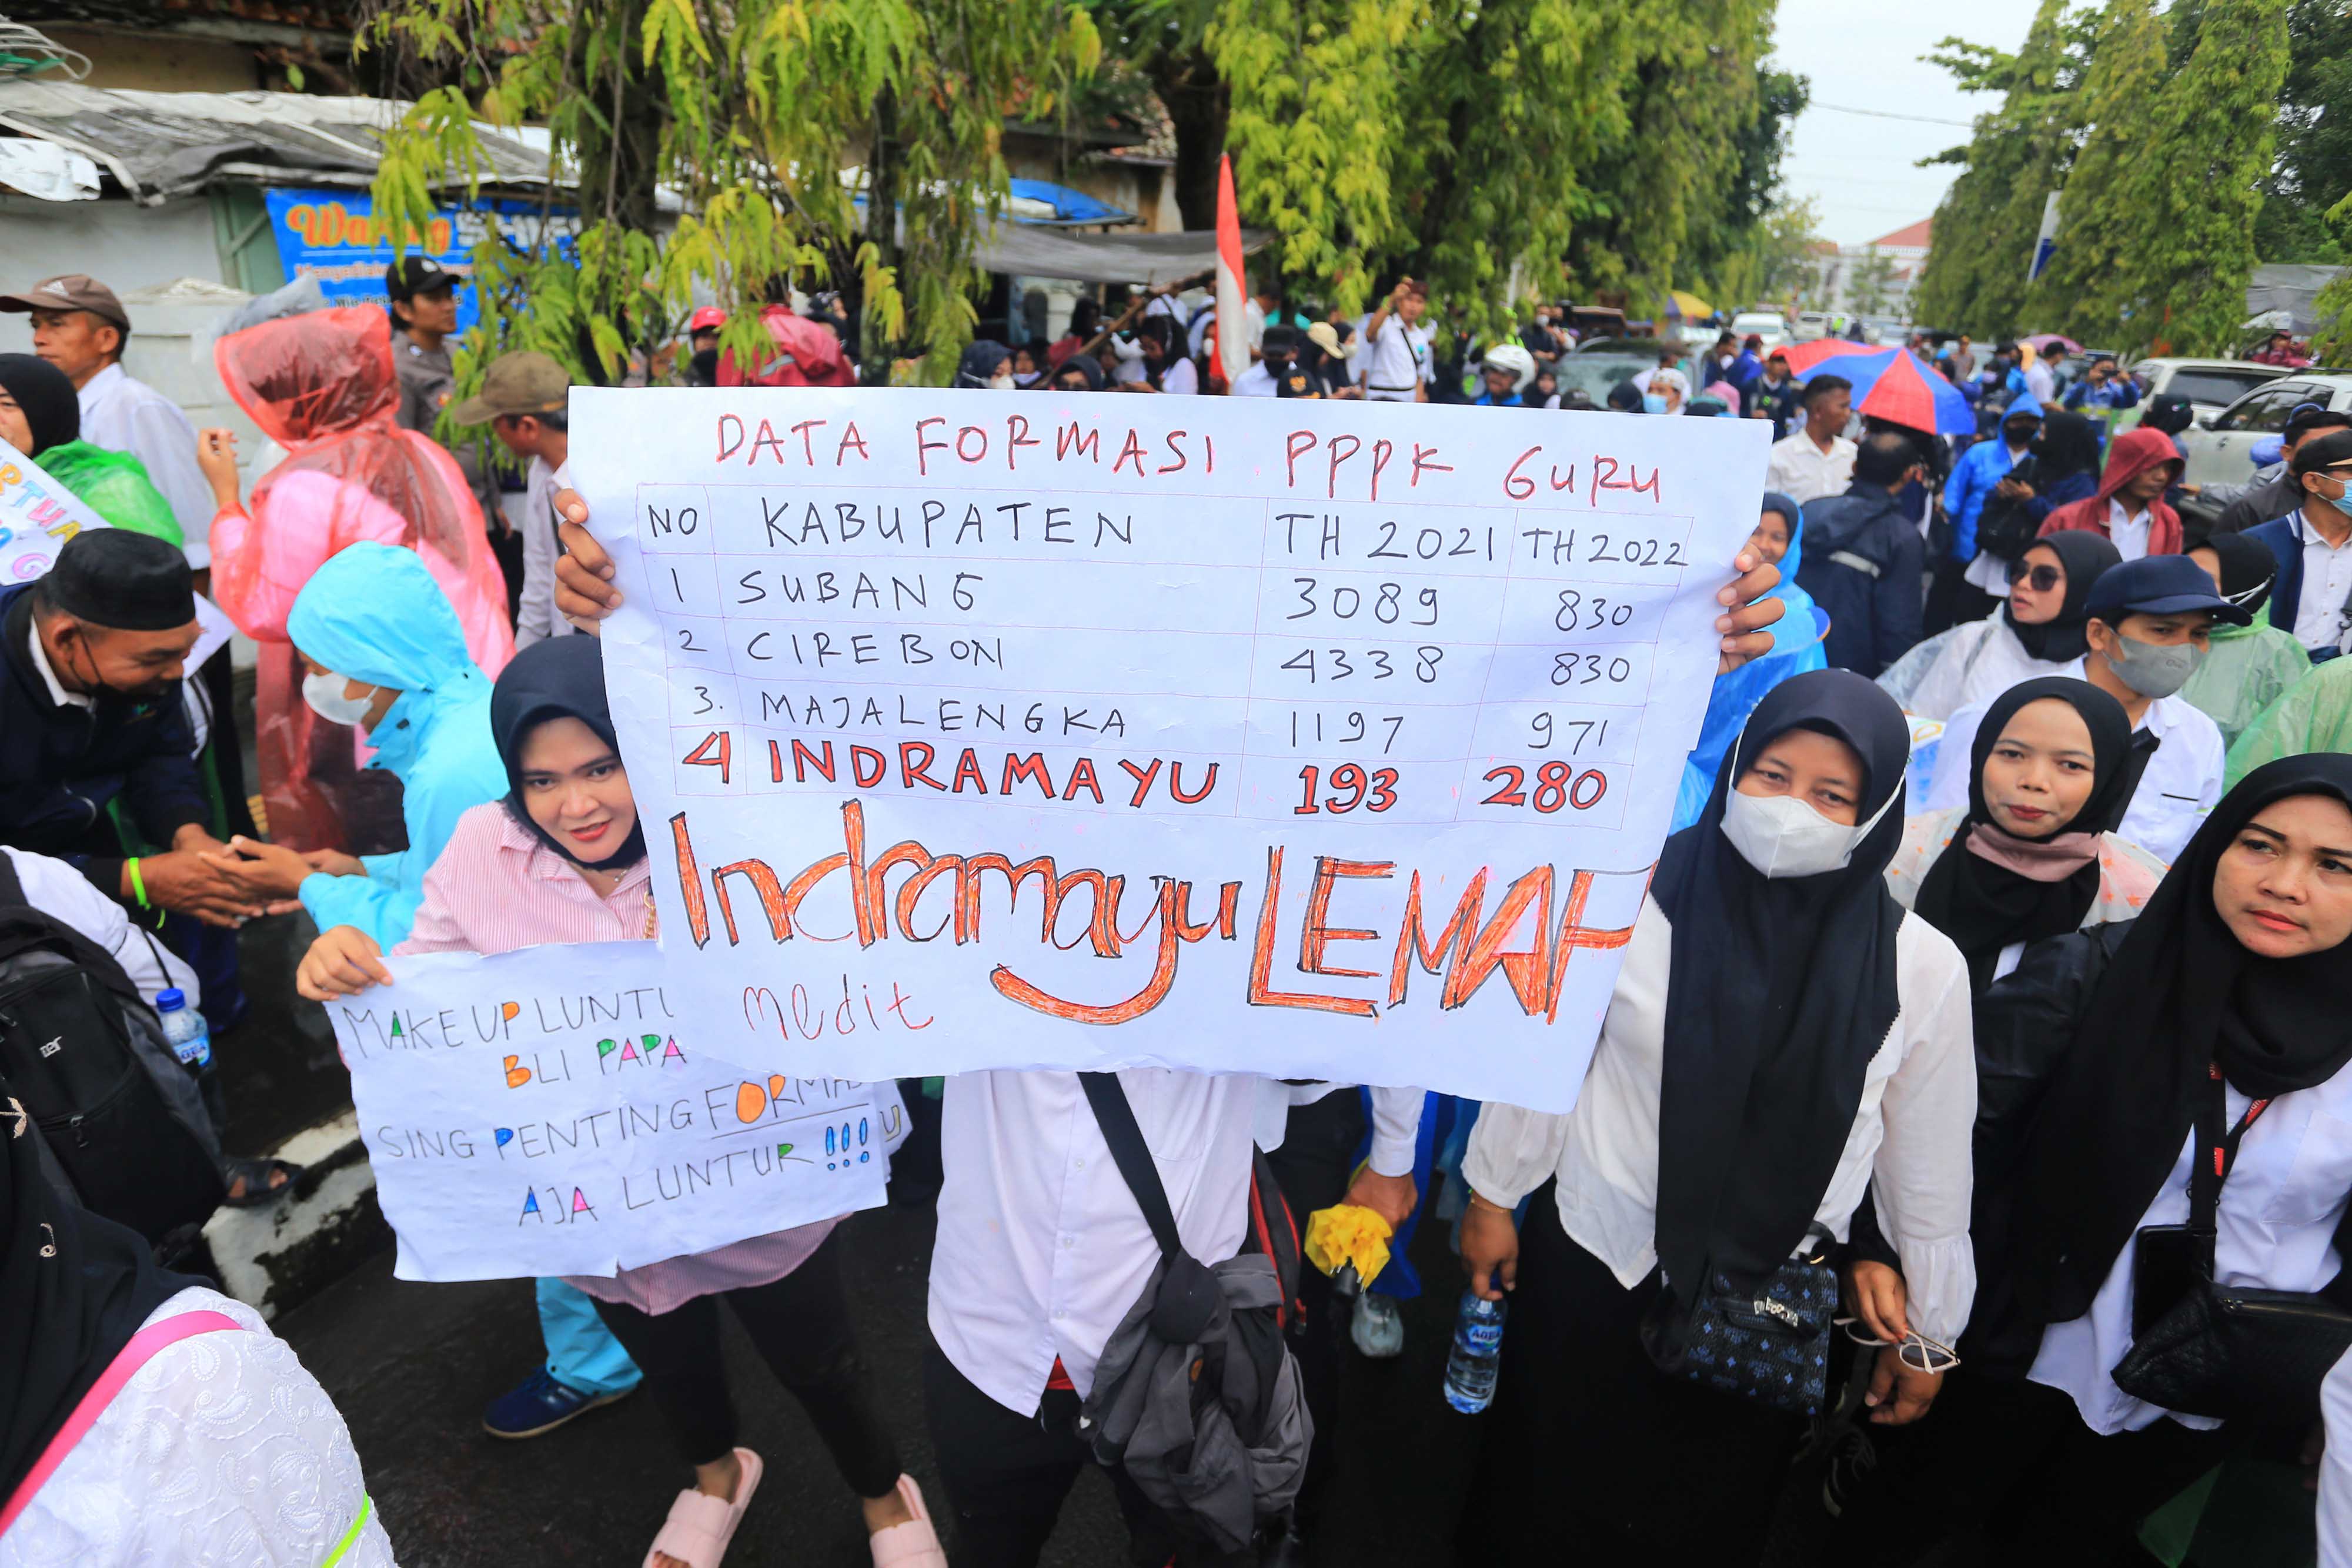 Warung
DATA FORMASI PPPK GURU
NO KABUPATEN TH 2021 TH 2022
1 SUBANG 3089 830
2 CIREBON 4338 830
3. MAJALENGKA 1197 971
4 INDRAMAYU 193 280
Indramayu LEMAH
medit
MAKE UP LUNTU
BLI PAPA
SING PENTING FORMAS
AJA LUNTUR !!!
AQUA
AQUA